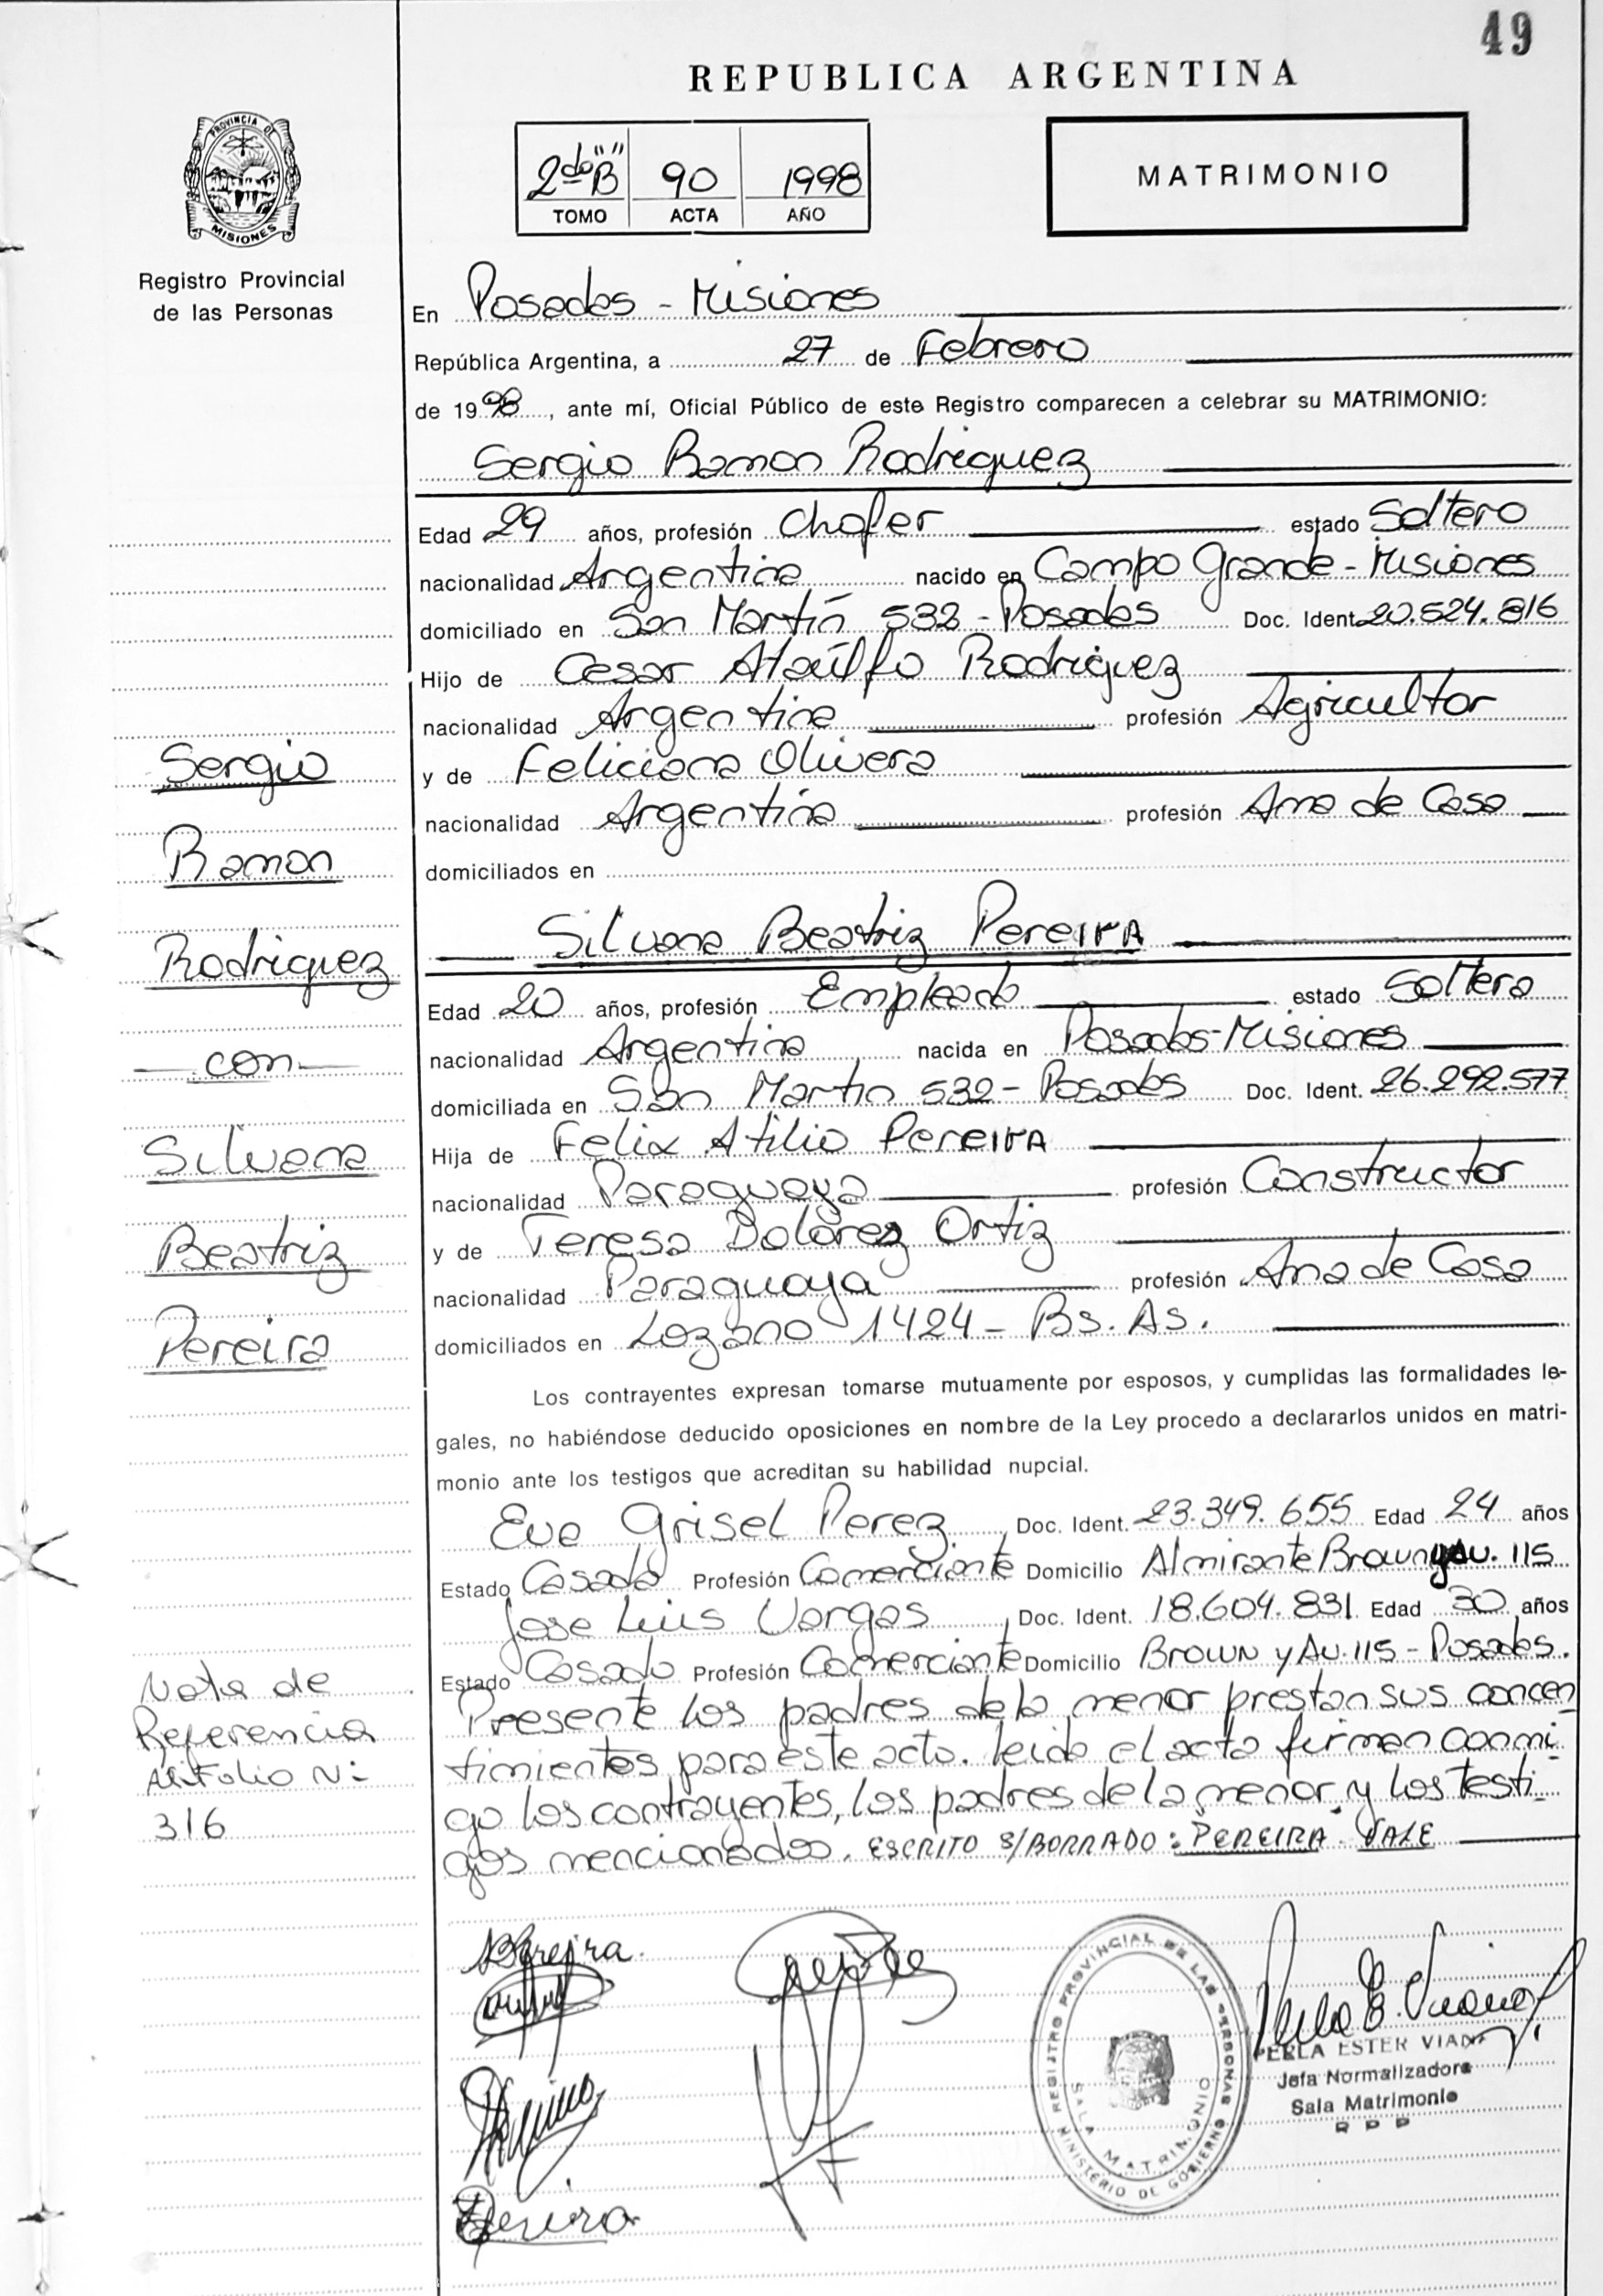 49
REPUBLICA ARGENTINA
PROVINCIA DE MISIONES
2do "B" 90 1998
TOMO ACTA AÑO
MATRIMONIO
Registro Provincial
de las Personas
En Posadas - Misiones
República Argentina, a 27 de Febrero
de 1998, ante mí, Oficial Público de este Registro comparecen a celebrar su MATRIMONIO:
Sergio Ramon Rodriguez
Edad 29 años, profesión Chofer estado Soltero
nacionalidad Argentina nacido en Campo Grande - Misiones
domiciliado en San Martín 532 - Posadas Doc. Ident. 20.524.816
Hijo de Cesar Ataúlfo Rodriguez
nacionalidad Argentina profesión Agricultor
y de Feliciana Olivera
nacionalidad Argentina profesión Ama de Casa
domiciliados en
Silvana Beatriz Pereira
Edad 20 años, profesión Empleada estado Soltera
nacionalidad Argentina nacida en Posadas - Misiones
domiciliada en San Martin 532 - Posadas Doc. Ident. 26.292.577
Hija de Felix Atilio Pereira
nacionalidad Paraguaya profesión Constructor
y de Teresa Dolores Ortiz
nacionalidad Paraguaya profesión Ama de Casa
domiciliados en Lozano 1424 - Bs. As.
Los contrayentes expresan tomarse mutuamente por esposos, y cumplidas las formalidades le-
gales, no habiéndose deducido oposiciones en nombre de la Ley procedo a declararlos unidos en matri-
monio ante los testigos que acreditan su habilidad nupcial.
Eva Grisel Perez, Doc. Ident. 23.349.655 Edad 24 años
Estado Casada Profesión Comerciante Domicilio Almirante Brown y Av. 115
Jose Luis Vargas, Doc. Ident. 18.604.831 Edad 30 años
Estado Casado Profesión Comerciante Domicilio Brown y Av. 115 - Posadas.
Presente los padres de la menor prestan sus concen
timientos para este acto. leido el acta firman conmi-
go los contrayentes, los padres de la menor y los testi-
gos mencionados. ESCRITO S/BORRADO: PEREIRA. VALE
Sergio
Ramon
Rodriguez
- con -
Silvana
Beatriz
Pereira
Nota de
Referencia
Al Folio N:
316
SBPereira.
Pereira
REGISTRO PROVINCIAL DE LAS PERSONAS
SALA MATRIMONIO
MINISTERIO DE GOBIERNO
Perla E. Viana
PERLA ESTER VIANA
Jefa Normalizadora
Sala Matrimonio
R P P